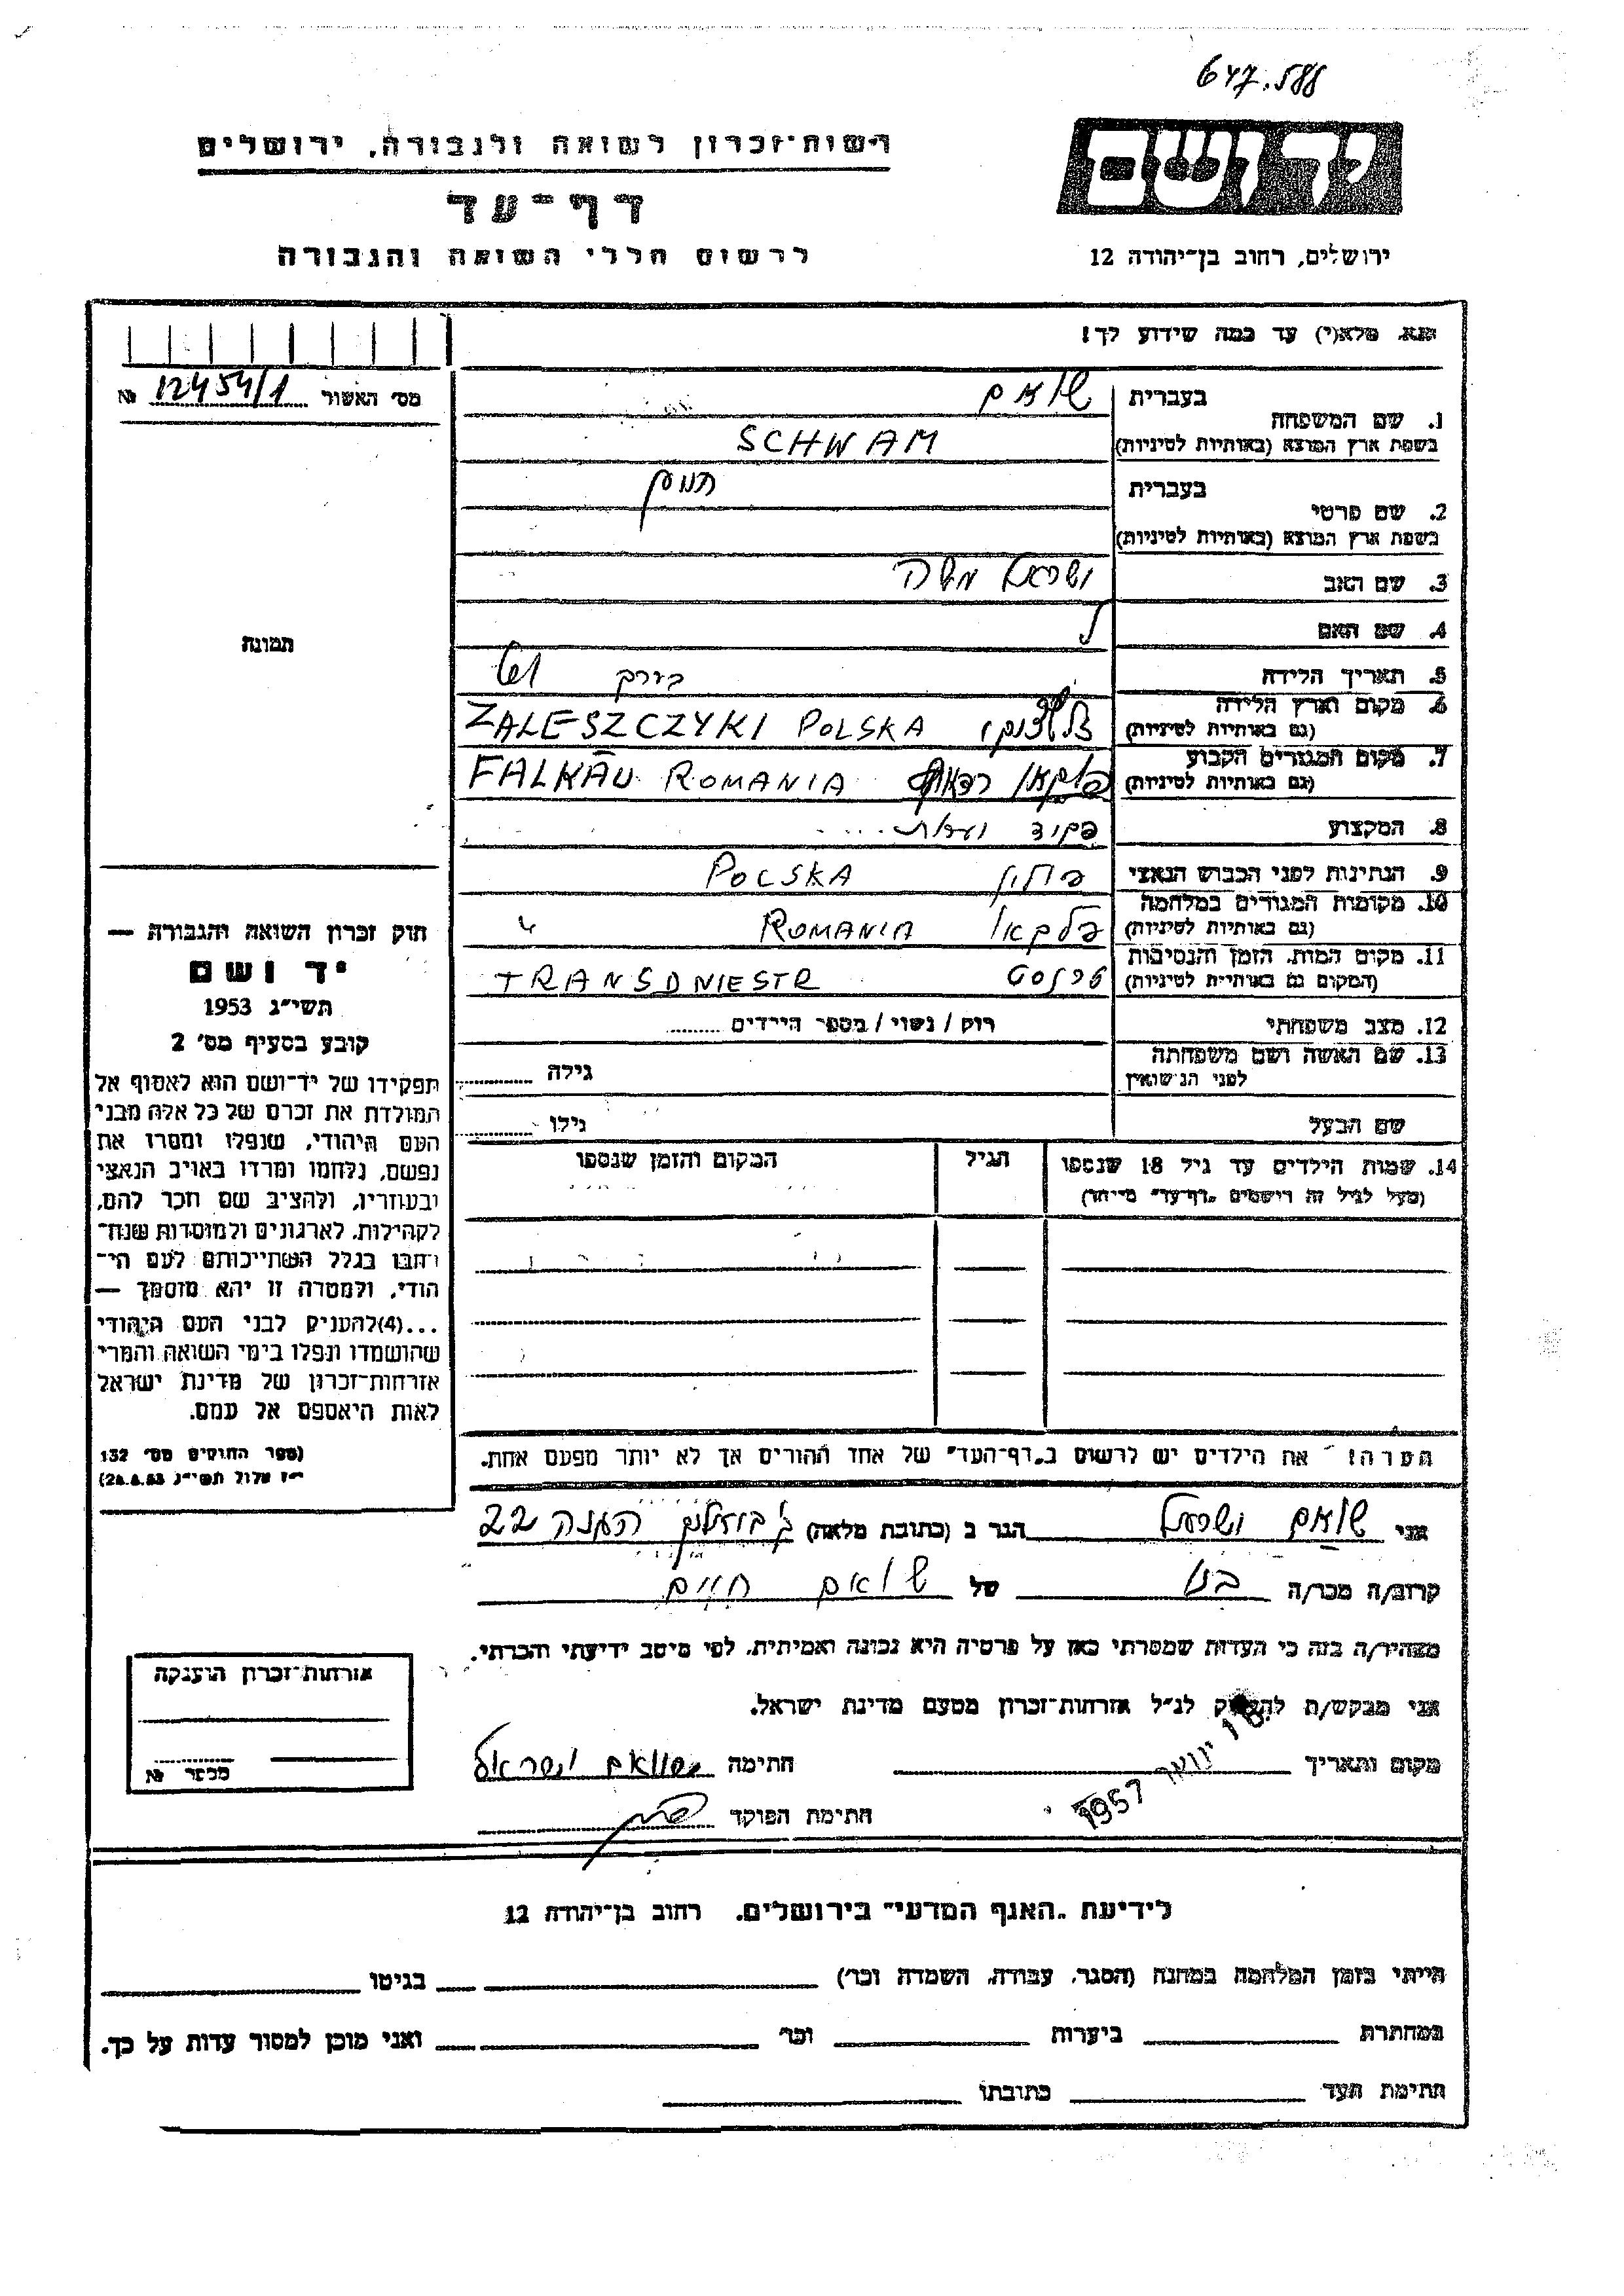 647.588
רשות-זכרון לשואה ולגבורה, ירושלים
יד ושם
דף-עד
לרשום חללי השואה והגבורה
ירושלים, רחוב בן-יהודה 12
נא. מלא(י) עד כמה שידוע לך!
מס׳ האשור 12454/1 №
1. שם המשפחה
בעברית שואם
בשפת ארץ המוצא (באותיות לטיניות) SCHWAM
2. שם פרטי
בעברית
בשפת ארץ המוצא (באותיות לטיניות)
3. שם האב ישראל משה
4. שם האם
5. תאריך הלידה
6. מקום וארץ הלידה
(גם באותיות לטיניות) ZALESZCZYKI POLSKA
7. מקום המגורים הקבוע
(גם באותיות לטיניות) FALKĀU ROMANIA
8. המקצוע
9. הנתינות לפני הכבוש הנאצי פולין POLSKA
10. מקומות המגורים במלחמה
(גם באותיות לטיניות) פלקאו ROMANIA "
11. מקום המות, הזמן והנסיבות
(המקום גם באותיות לטיניות) TRANSDNIESTR
12. מצב משפחתי רווק / נשוי / מספר הילדים
13. שם האשה ושם משפחתה
לפני הנישואין גילה
שם הבעל גילו
14. שמות הילדים עד גיל 18 שנספו הגיל המקום והזמן שנספו
(מעל לגיל זה רושמים „דף-עד״ מיוחד)
תמונה
חוק זכרון השואה והגבורה —
יד ושם
תשי״ג 1953
קובע בסעיף מס׳ 2
תפקידו של יד-ושם הוא לאסוף אל
המולדת את זכרם של כל אלה מבני
העם היהודי, שנפלו ומסרו את
נפשם, נלחמו ומרדו באויב הנאצי
ובעוזריו, ולהציב שם וזכר להם,
לקהילות, לארגונים ולמוסדות שנח-
רבו בגלל השתייכותם לעם הי-
הודי, ולמטרה זו יהא מוסמך —
...(4) להעניק לבני העם היהודי
שהושמדו ונפלו בימי השואה והמרי
אזרחות-זכרון של מדינת ישראל
לאות היאספם אל עמם.
(ספר החוקים מס׳ 132
י״ז אלול תשי״ג 28.8.53)
הערה! את הילדים יש לרשום ב„דף-העד״ של אחד ההורים אך לא יותר מפעם אחת.
אני שואם ישראל הגר ב (כתובת מלאה) ההגנה 22
קרוב/ה מכר/ה בנו של שואם חיים
מצהיר/ה בזה כי העדות שמסרתי כאן על פרטיה היא נכונה ואמיתית, לפי מיטב ידיעתי והכרתי.
אני מבקש/ת להעניק לנ״ל אזרחות-זכרון מטעם מדינת ישראל.
מקום ותאריך ינואר 1957 חתימה שוואם ישראל
חתימת הפוקד
אזרחות-זכרון הוענקה
מספר №
לידיעת „האגף המדעי״ בירושלים, רחוב בן-יהודה 12
הייתי בזמן המלחמה במחנה (הסגר, עבודה, השמדה וכו׳) בגיטו
במחתרת ביערות וכו׳ ואני מוכן למסור עדות על כך.
חתימת העד כתובתו